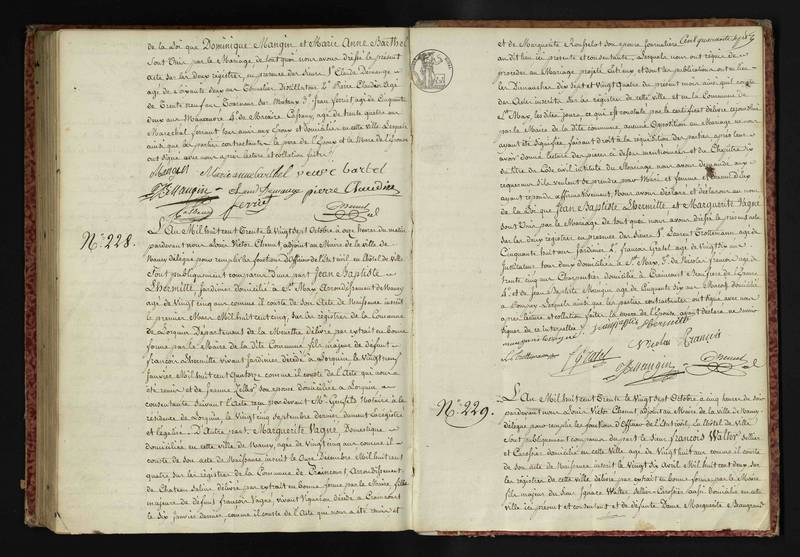 de la Loi que Dominique Mangin et Marie Anne Barthel
sont Unis par le Mariage de tout quoi nous avons dressé le présent
acte sur les deux registres, en présence des Sieurs 1° Claude Demange
agé de soixante deux ans Distillateur 2° Pierre Claudin agé
de Trente neuf ans Tourneur sur 3° Jean ferriet agé de Cinquante
deux ans Manoeuvre 4° de agé de trente quatre ans
Marechal ferrant tous domiciliés en cette Ville Lesquels
ainsi que les parties contractantes le pere de l'Epoux et la Mere de l'Epouse
ont signé avec nous après lecture et collation faite
Mangin Marie anne barthel veuve barbel
Mangin Demange pierre claudin
ferriet
N° 228.
L'An Mil huit cent Trente le Vingt sept Octobre à onze heures du matin
pardevant nous Louis Victor Chenut, adjoint au Maire de la ville de
Nancy délégué pour remplir les fonctions d'officier de l'Etat civil en l'hôtel de Ville
Sont publiquement comparus d'une part Jean Baptiste
Lhermitte Jardinier domicilié à St Max Arrondissement de Nancy
agé de Vingt cinq ans comme il conste de son Acte de Naissance inscrit
le premier Mars Mil huit cent cinq, sur les registres de la Commune
de Lorquin Département de la Meurthe délivré par extrait en bonne
forme par le Maire de la dite Commune fils majeur de défunt
françois Lhermitte vivant Jardinier décédé à Lorquin le Vingt neuf
Janvier Mil huit cent Quatorze comme il conste de l'acte qui nous a
été remis et de son épouse domiciliée à Lorquin
consentante suivant l'Acte reçu pardevant Me Notaire à la
résidence de Lorquin, le Vingt cinq Septembre dernier dument enregistré
et légalisé. D'autre part Marguerite Vagné Domestique
domiciliée en cette ville de Nancy, agée de Vingt cinq ans comme il
conste de son acte de Naissance inscrit le Onze Décembre Mil huit cent
quatre, sur les registres de la Commune de Craincourt, Arrondissement
de Chateau Salins délivré par extrait en bonne forme par le Maire, fille
majeure de défunt françois Vagné vivant Vigneron décédé à Craincourt
le six Janvier dernier comme il conste de l'Acte qui nous a été remis et
et de Marguerite son épouse Journalière
au dit lieu ici présente et consentante, Lesquels nous ont requis de
procéder au Mariage projetté entr'eux et dont les publications ont eu lieu
les Dimanches dix sept et Vingt quatre du présent mois ainsi qu'il conste
des Actes inscrits sur les registres de cette ville et en la Commune de
St Max, les dits Jours, ce qui est constaté par le certificat délivré
par le Maire de la dite commune aucune Opposition au Mariage ne nous
ayant été signifiée faisant droit à la réquisition des parties après leur
avoir donné lecture des pieces ci dessus mentionnées et du Chapitre six
du Titre du Code civil intitulé du Mariage nous avons demandé aux
requérans s'ils veulent se prendre pour Mari et femme, et chacun d'eux
ayant répondu affirmativement, Nous avons déclaré et déclarons au nom
de la Loi que Jean Baptiste Lhermitte et Marguerite Vagné
sont Unis par le Mariage de tout quoi nous avons dressé le présent acte
sur les deux registres en presence des Sieurs 1° Laurent Trottmann agé de
Cinquante huit ans Jardinier 2° françois agé de Vingt six ans
Instituteur tous deux domiciliés à St Max, 3° de Nicolas françois agé de
trente cinq ans Charpentier domicilié à Craincourt de l'Epouse
4° et de Jean Baptiste Mangin agé de Cinquante six ans domicilié
Lesquels ainsi que les parties contractantes ont signé avec nous
après lecture et collation faite, la mere de l'Epouse ayant déclaré ne savoir
signer de ce interpellée
Jean baptiste Lhermitte
Marguerite Vagné Nicolas François
Mangin
N° 229.
L'An Mil huit cent Trente le Vingt sept Octobre à cinq heures du soir
pardevant nous Louis Victor Chenut adjoint au Maire de la ville de Nancy
délégué pour remplir les fonctions d'officier de l'Etat civil, en l'hôtel de Ville
Sont publiquement comparus d'une part le Sieur François Walter Sellier
et Carossier domicilié en cette Ville agé de Vingt huit ans comme il conste
de son acte de Naissance inscrit le Vingt six Avril Mil huit cent deux, sur
les registres de cette ville délivré par extrait en bonne forme par le Maire
fils majeur du Sieur Ignace Walter Sellier Carossier domicilié en cette
ville ici présent et consentant et de défunte Dame Marguerite